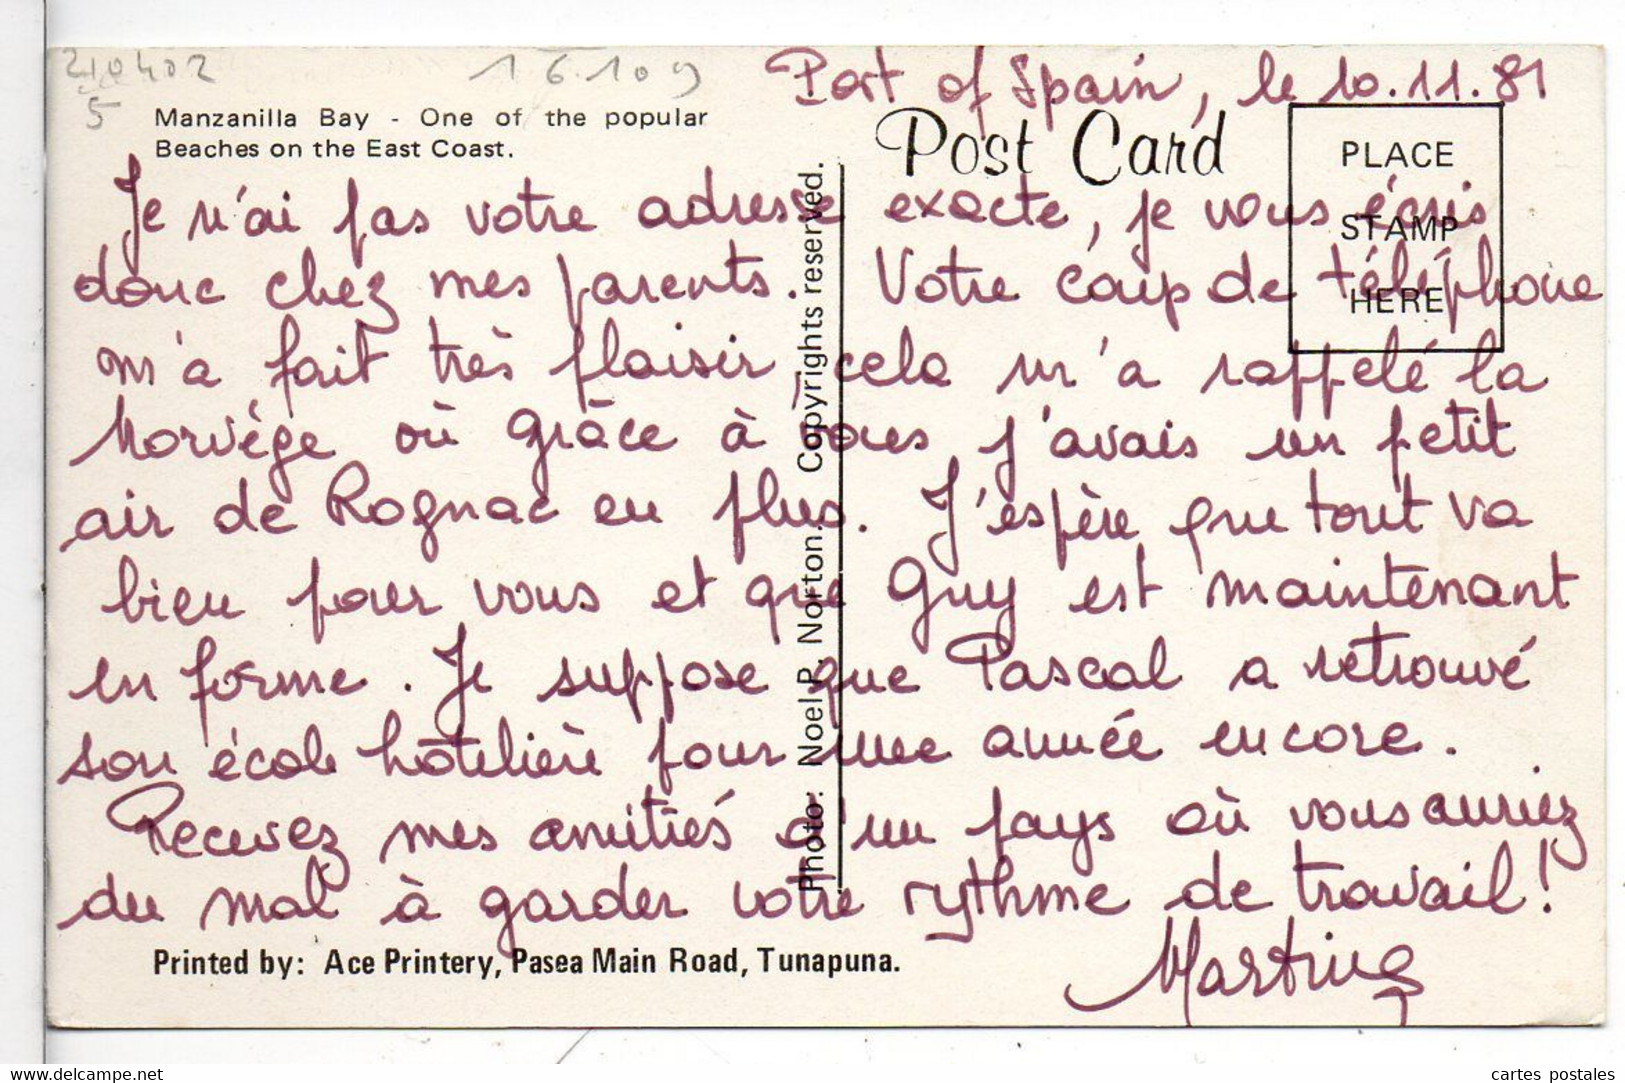 210402
5
16.109
Port of Spain, le 10.11.81
Manzanilla Bay - One of the popular
Beaches on the East Coast.
Post Card
PLACE
STAMP
HERE
Je n'ai pas votre adresse exacte, je vous écris
donc chez mes parents. Votre coup de téléphone
m'a fait très plaisir, cela m'a rappelé la
Norvège où grâce à vous j'avais un petit
air de Rognac en plus. J'espère que tout va
bien pour vous et que Guy est maintenant
en forme. Je suppose que Pascal a retrouvé
son école hôtelière pour une année encore.
Recevez mes amitiés d'un pays où vous auriez
du mal à garder votre rythme de travail!
Martine
Photo: Noel P. Norton. Copyrights reserved.
Printed by: Ace Printery, Pasea Main Road, Tunapuna.
www.delcampe.net
cartes postales